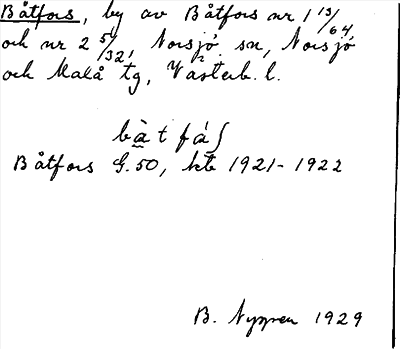 Båtfors, by av Båtfors nr 1 13/64
och nr 2 5/32, Norsjö sn, Norsjö
och Malå tg, Västerb. l.
bàt fáʃ
Båtfors G.50, kbt 1921-1922
B. Nygren 1929